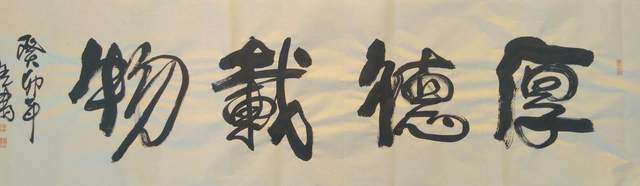 厚德載物
癸卯年